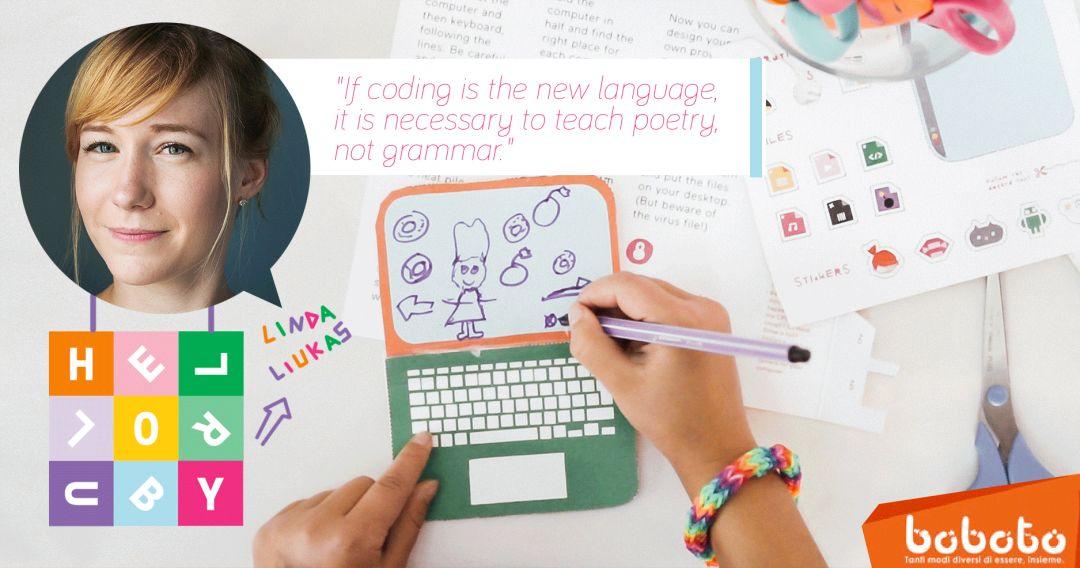 computer and
then keyboard,
following the
lines. Be careful
build the
computer in
half and find the
right place for
Now you can
design your
"If coding is the new language,
it is necessary to teach poetry,
not grammar."
put the files
on your desktop.
(But beware of
the virus file!)
8
STICKERS
LINDA
LIUKAS
H E L
L O R
U B Y
boboto
Tanti modi diversi di essere, insieme.